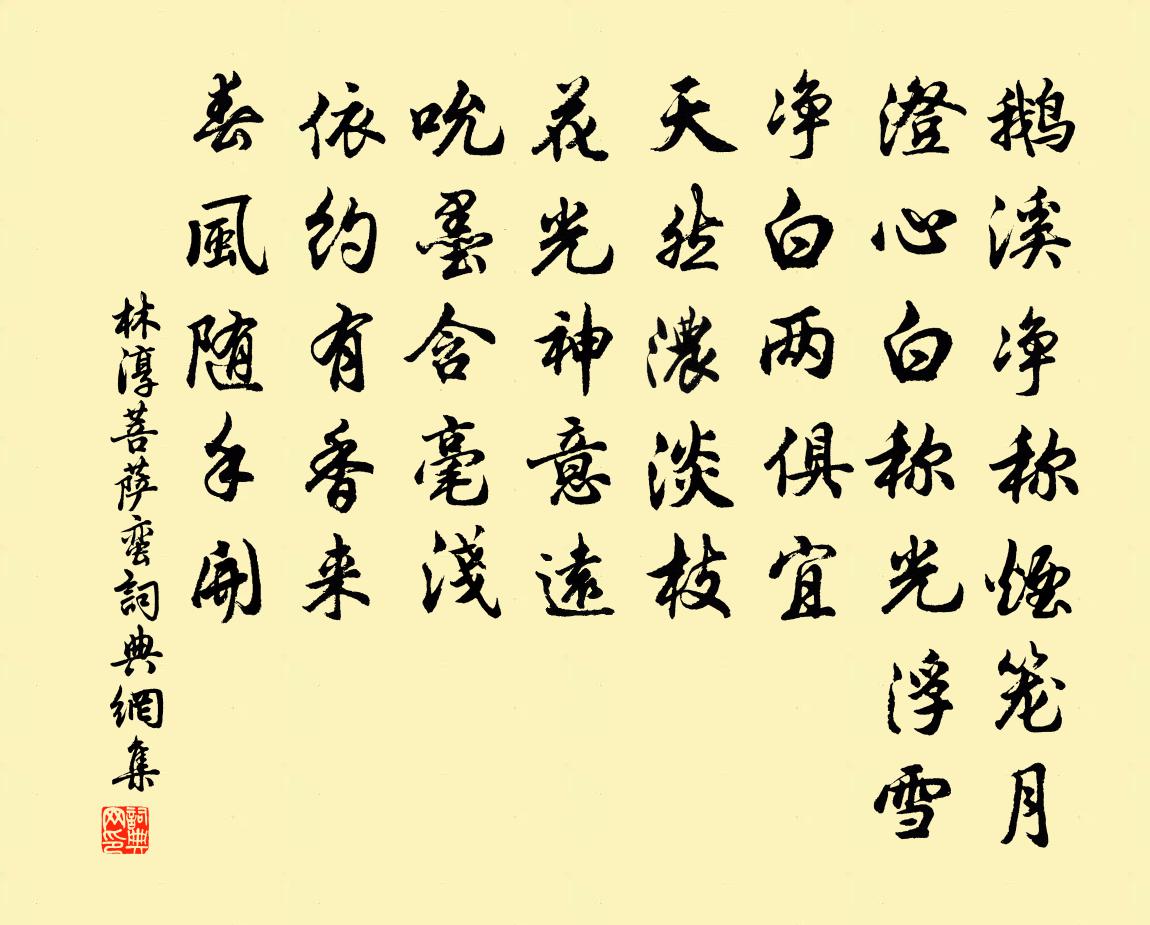 鹅溪净称煙笼月
澄心白称光浮雪
净白两俱宜
天然濃淡枝
花光神意遠
吮墨含毫淺
依约有香来
春風随手開
林淳菩萨蛮詞典網集
詞典网印